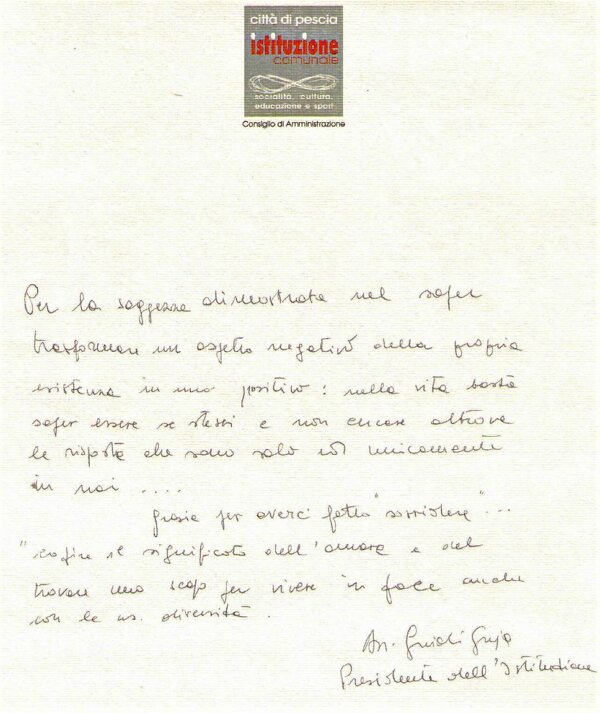 città di pescia
istituzione
comunale
socialità, cultura,
educazione e sport
Consiglio di Amministrazione
Per la saggezza dimostrata nel saper
trasformare un aspetto negativo della propria
esistenza in uno positivo: nella vita basta
saper essere se stessi e non cercare altrove
le risposte che sono solo ed unicamente
in noi ....
grazie per averci fatto "sorridere"...
"capire il significato dell'amore e del
trovare uno scopo per vivere in pace anche
con le ns. diversità.
Presidente dell'Istituzione